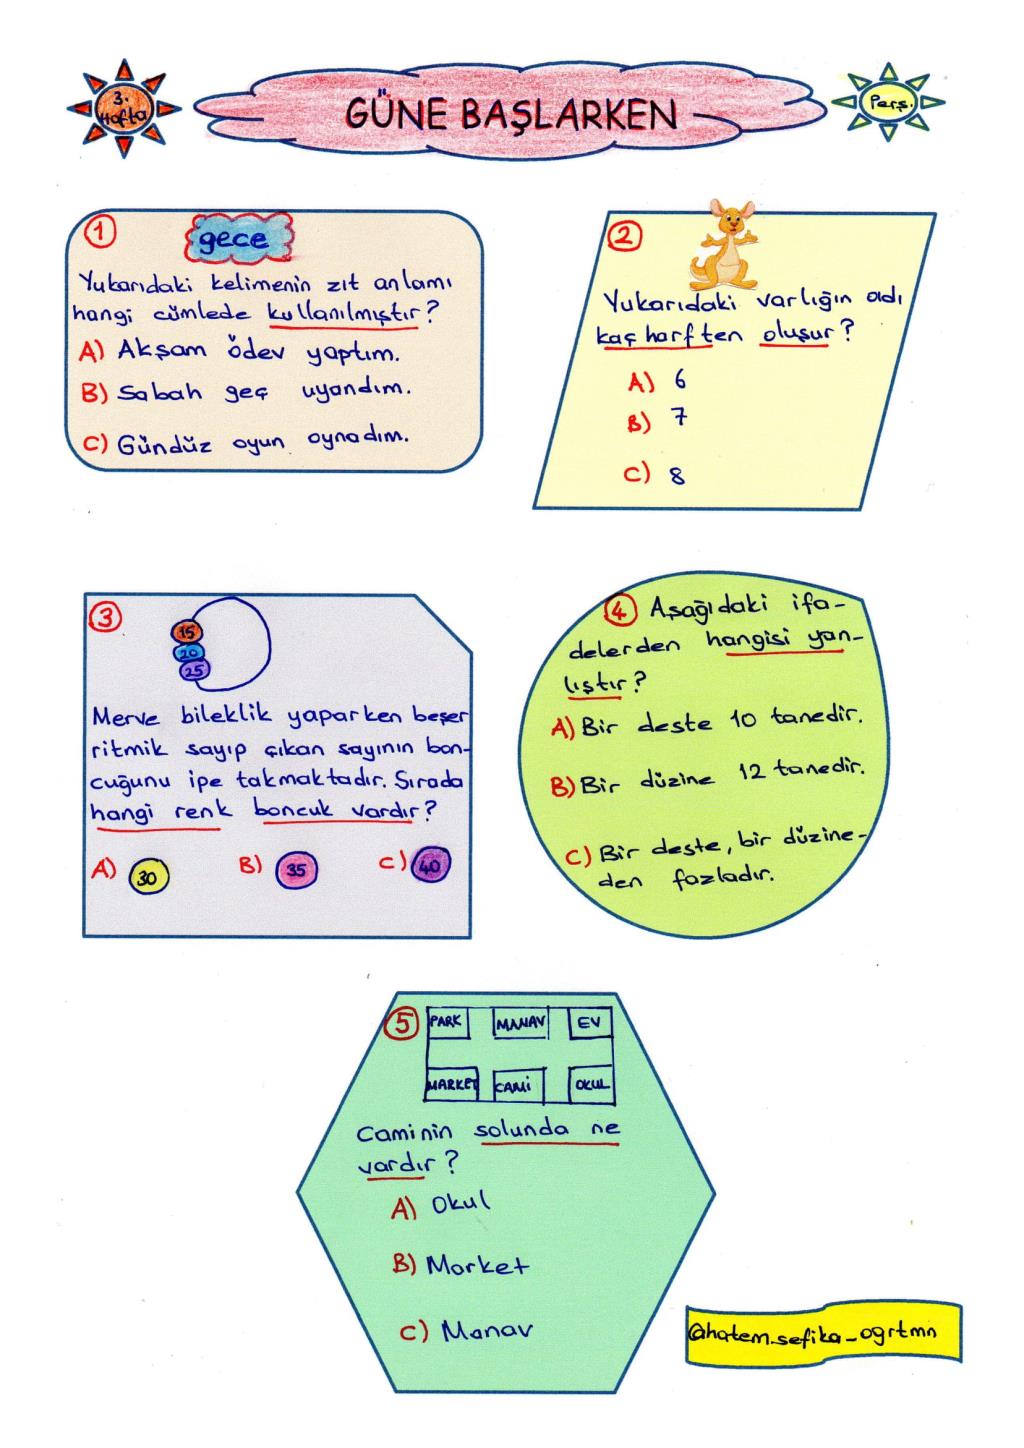 3.
Hafta
GÜNE BAŞLARKEN
Perş.
1
gece
Yukarıdaki kelimenin zıt anlamı
hangi cümlede kullanılmıştır?
A) Akşam ödev yaptım.
B) Sabah geç uyandım.
C) Gündüz oyun oynadım.
2
Yukarıdaki varlığın adı
kaç harften oluşur?
A) 6
B) 7
C) 8
3
15
20
25
Merve bileklik yaparken beşer
ritmik sayıp çıkan sayının bon-
cuğunu ipe takmaktadır. Sırada
hangi renk boncuk vardır?
A) 30 B) 35 C) 40
4 Aşağıdaki ifa-
delerden hangisi yan-
lıştır?
A) Bir deste 10 tanedir.
B) Bir düzine 12 tanedir.
C) Bir deste, bir düzine-
den fazladır.
5
PARK MANAV EV
MARKET CAMİ OKUL
Caminin solunda ne
vardır?
A) Okul
B) Market
C) Manav
@hatem_sefika_ogrtmn